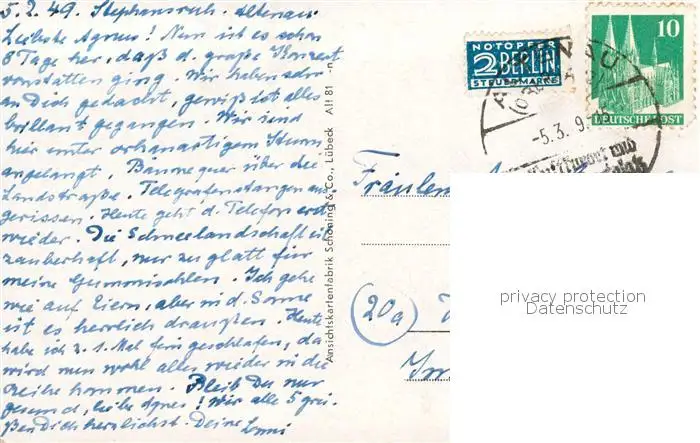 5.3.49. Stephansruh-Altenau
Liebste Agnes! Nun ist es schon
8 Tage her, daß d. große Konzert
vonstatten ging. Wir haben sehr
an Dich gedacht, gewiß ist alles
brillant gegangen. Wir sind
hier unter orkanartigem Sturm
angelangt. Bäume quer über die
Landstraße. Telegrafenstangen aus-
gerissen. Heute geht d. Telefon erst
wieder. Die Schneelandschaft ist
zauberhaft, nur zu glatt für
meine Gummisohlen. Ich gehe
wie auf Eiern, aber in d. Sonne
ist es herrlich draußen. Heute
habe ich z. 1. Mal fein geschlafen, da
wird nun wohl alles wieder in die
Reihe kommen. Bleib Du nur
gesund, liebe Agnes! Wir alle 5 grü-
ßen Dich herzlichst. Deine
Ansichtskartenfabrik Schöning & Co., Lübeck Alt 81
NOTOPFER
2 BERLIN
STEUERMARKE
10
DEUTSCHE POST
ALTENAU
-5.3.
und
Fräulein
(20a)
Im
privacy protection
Datenschutz